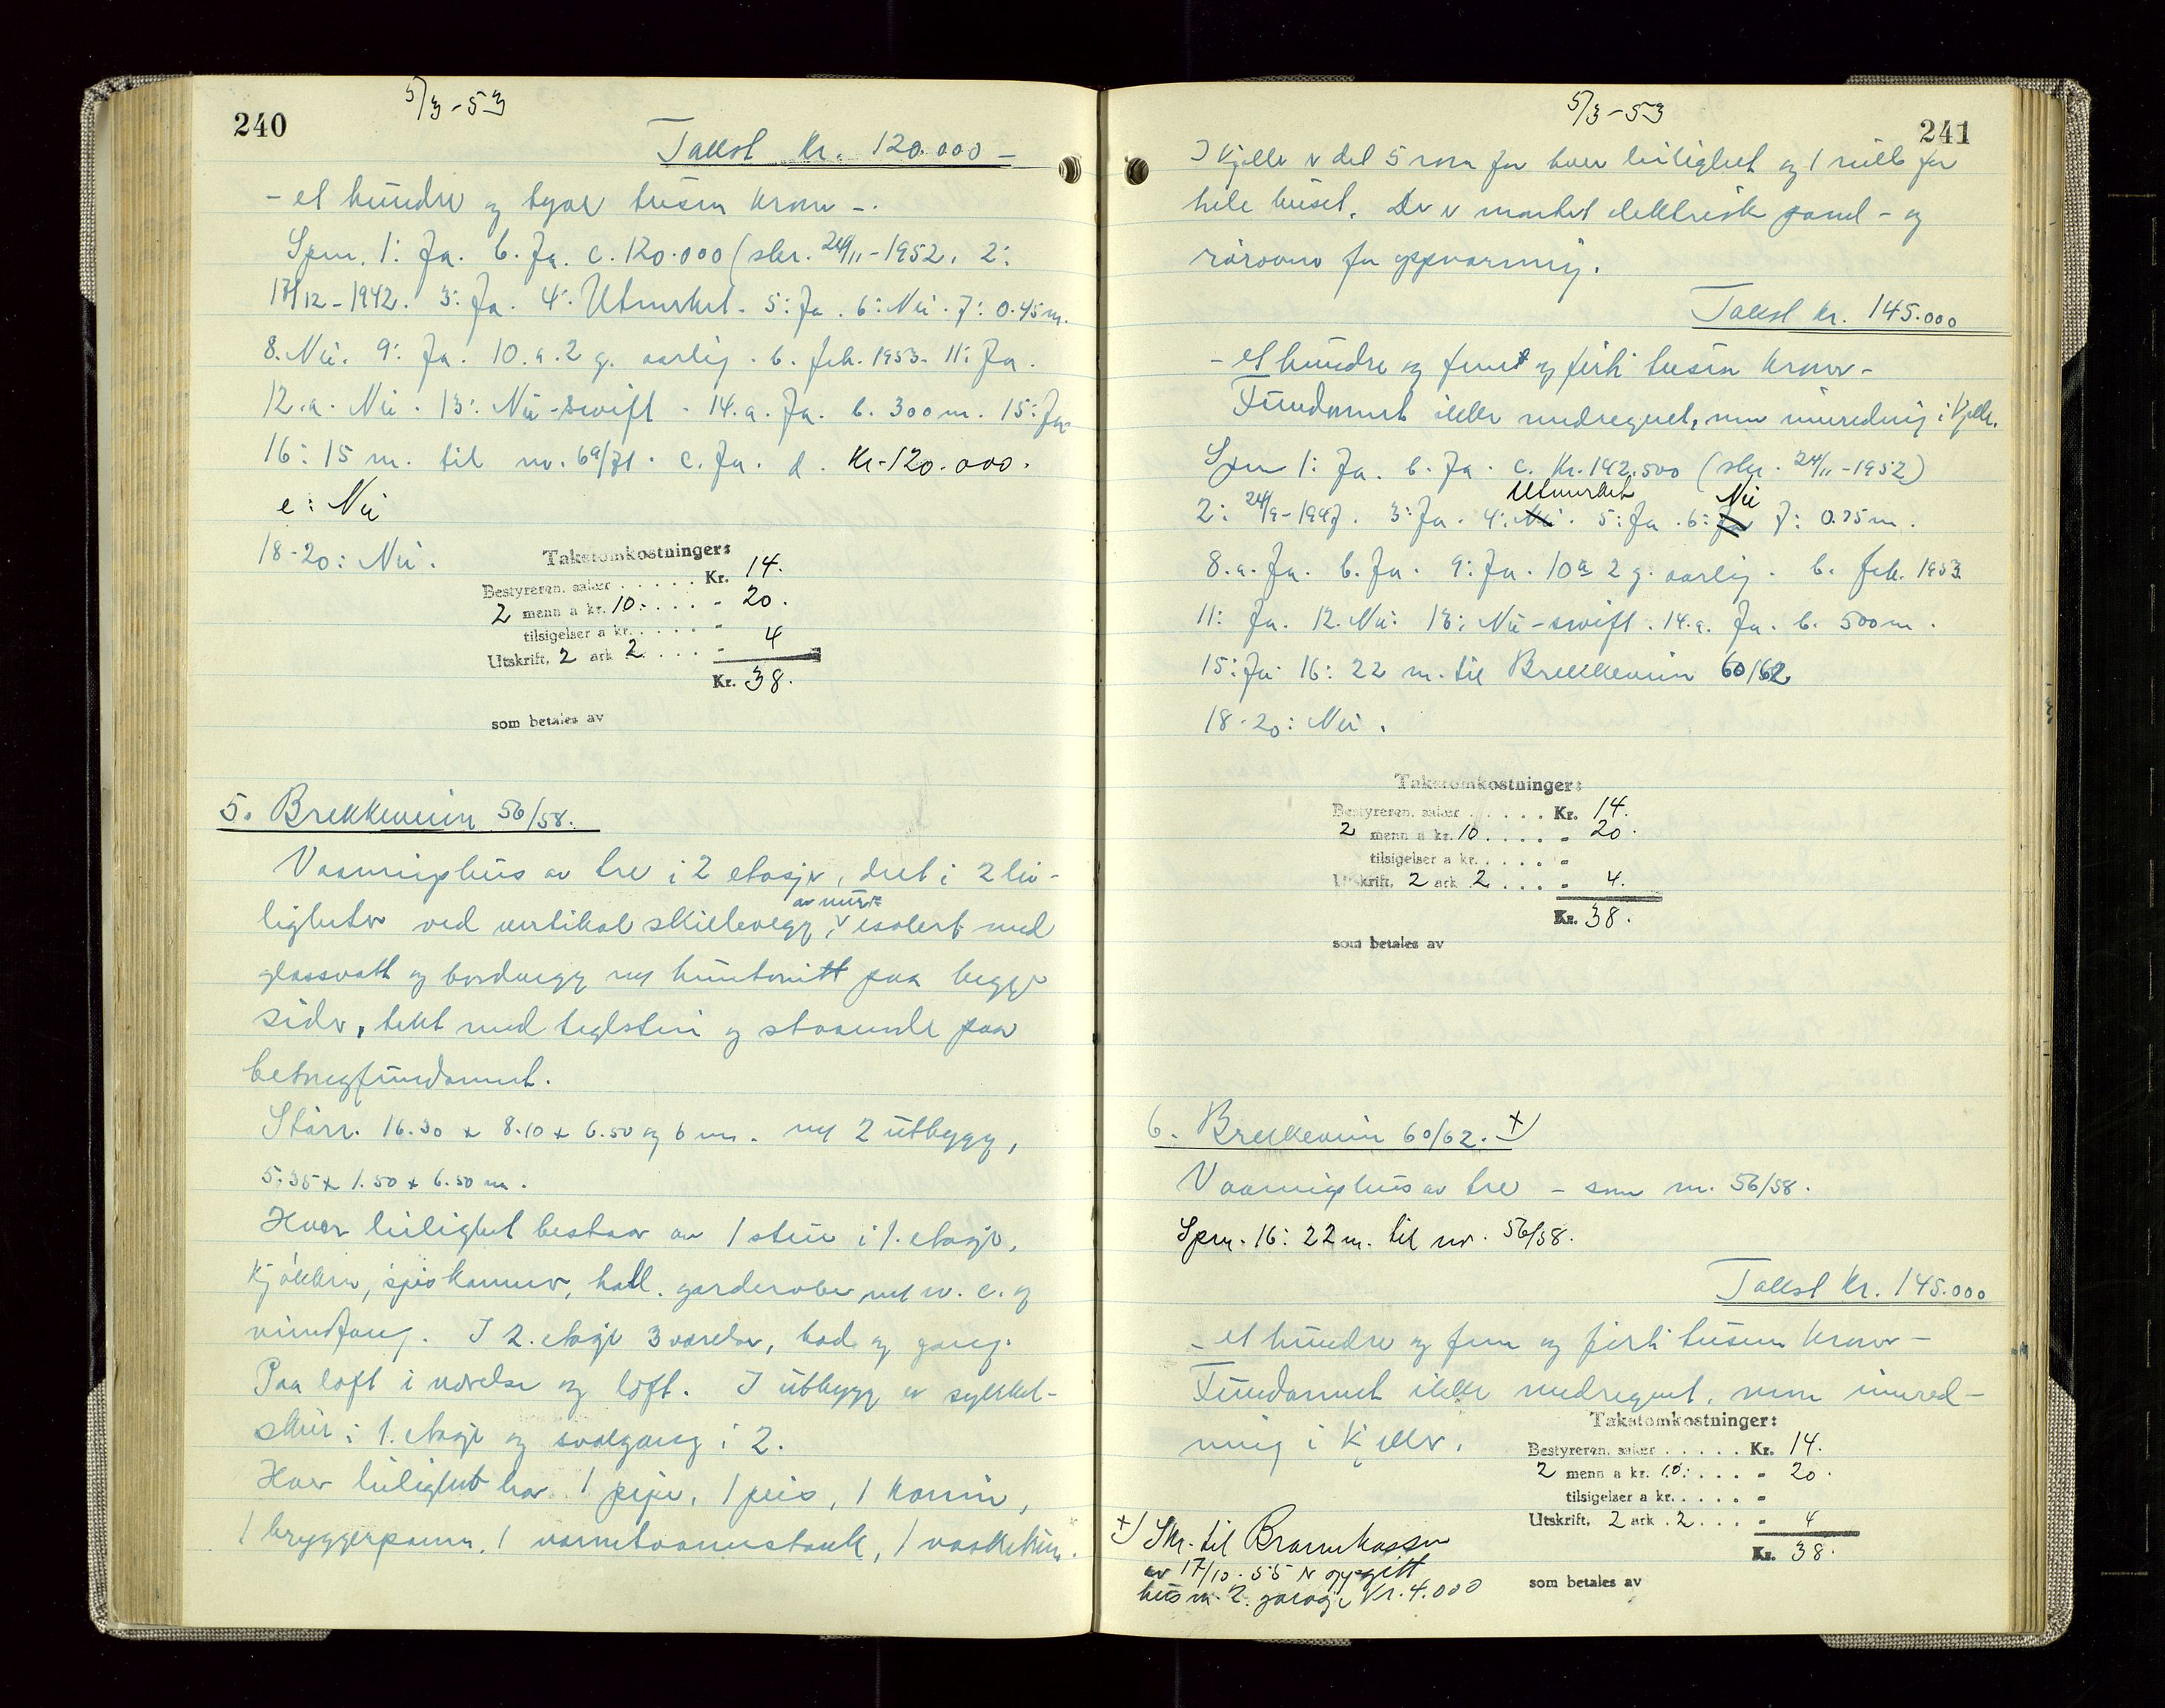 240
5/3-53
Takst kr. 120.000 –
– et hundre og tyve tusen kroner –.
Spm. 1: Ja. b. Ja. c. 120.000 (skr. 24/11-1952. 2:
17/12-1942. 3: Ja. 4: Utmerket. 5: Ja. 6: Nei. 7: 0.45 m.
8. Nei. 9: Ja. 10.a. 2 g. aarlig. b. feb. 1953. 11: Ja.
12.a. Nei. 13: Nu-swift. 14.a. Ja. b. 300 m. 15: Ja
16: 15 m. til nr. 69/71. c. Ja. d. Kr. 120.000.
e: Nei
18-20: Nei.
Takstomkostninger:
Bestyreren, saker ..... Kr. 14.
2 menn a kr. 10: .... - 20.
tilsigelser a kr. .... -
Utskrift, 2 ark 2. ... - 4
Kr. 38.
som betales av
5. Brekkeveien 56/58.
Vaaningshus av tre i 2 etasjer, delt i 2 lei-
ligheter ved vertikal skillevegg, av mur isolert med
glassvatt og bordvegg m/ huntonitt paa begge
sider, tekt med teglsten og staaende paa
betongfundament.
Störr. 16.30 x 8.10 x 6.50 og 6 m. m/ 2 utbygg,
5.35 x 1.50 x 6.50 m.
Hver leilighet bestaar av 1 stue i 1. etasje,
kjökken, spiskammer, hall, garderobe m/ w.c. og
vindfang. I 2. etasje 3 værelser, bad og gang.
Paa loft 1 værelse og loft. I utbygg er sykkel-
skur i 1. etasje og svalgang i 2.
Hver leilighet har 1 pipe, 1 peis, 1 kamin,
1 bryggerpanne, 1 varmtvannstank, 1 vaskekum.
5/3-53
241
I kjeller er det 5 rom for hver leilighet og 1 rulle for
hele huset. Der er montert elektrisk panel- og
rörovner for oppvarming.
Takst kr. 145.000
– et hundre og fem og förti tusen kroner –
Fundament ikke medregnet, men innredning i kjeller.
Spm 1: Ja. b. Ja. c. Kr. 142.500 (skr. 24/11-1952)
2: 24/9-1947. 3: Ja. 4: Nei Utmerket. 5: Ja. 6: Ja Nei 7: 0.75 m.
8.a. Ja. b. Ja. 9: Ja. 10a 2 g. aarlig. b. feb. 1953.
11: Ja. 12. Nei. 13: Nu-swift. 14.a. Ja. b. 500 m.
15: Ja. 16: 22 m. til Brekkeveien 60/62
18-20: Nei.
Takstomkostninger:
Bestyreren, saker ..... Kr. 14.
2 menn a kr. 10. .... - 20.
tilsigelser a kr. .... -
Utskrift, 2 ark 2 .... - 4.
Kr. 38.
som betales av
6. Brekkeveien 60/62. x)
Vaaningshus av tre – som nr. 56/58.
Spm. 16: 22 m. til nr. 56/58.
Takst kr. 145.000
– et hundre og fem og förti tusen kroner –
Fundament ikke medregnet, men innred-
ning i kjeller.
Takstomkostninger:
Bestyreren, saker ..... Kr. 14.
2 menn a kr. 10: .... - 20.
tilsigelser a kr. .... -
Utskrift, 2 ark . 2 ... - 4
Kr. 38.
som betales av
x) Skr. til Brannkassen
av 17/10-55 er oppgitt
hus m. 2 garasje Kr. 4.000